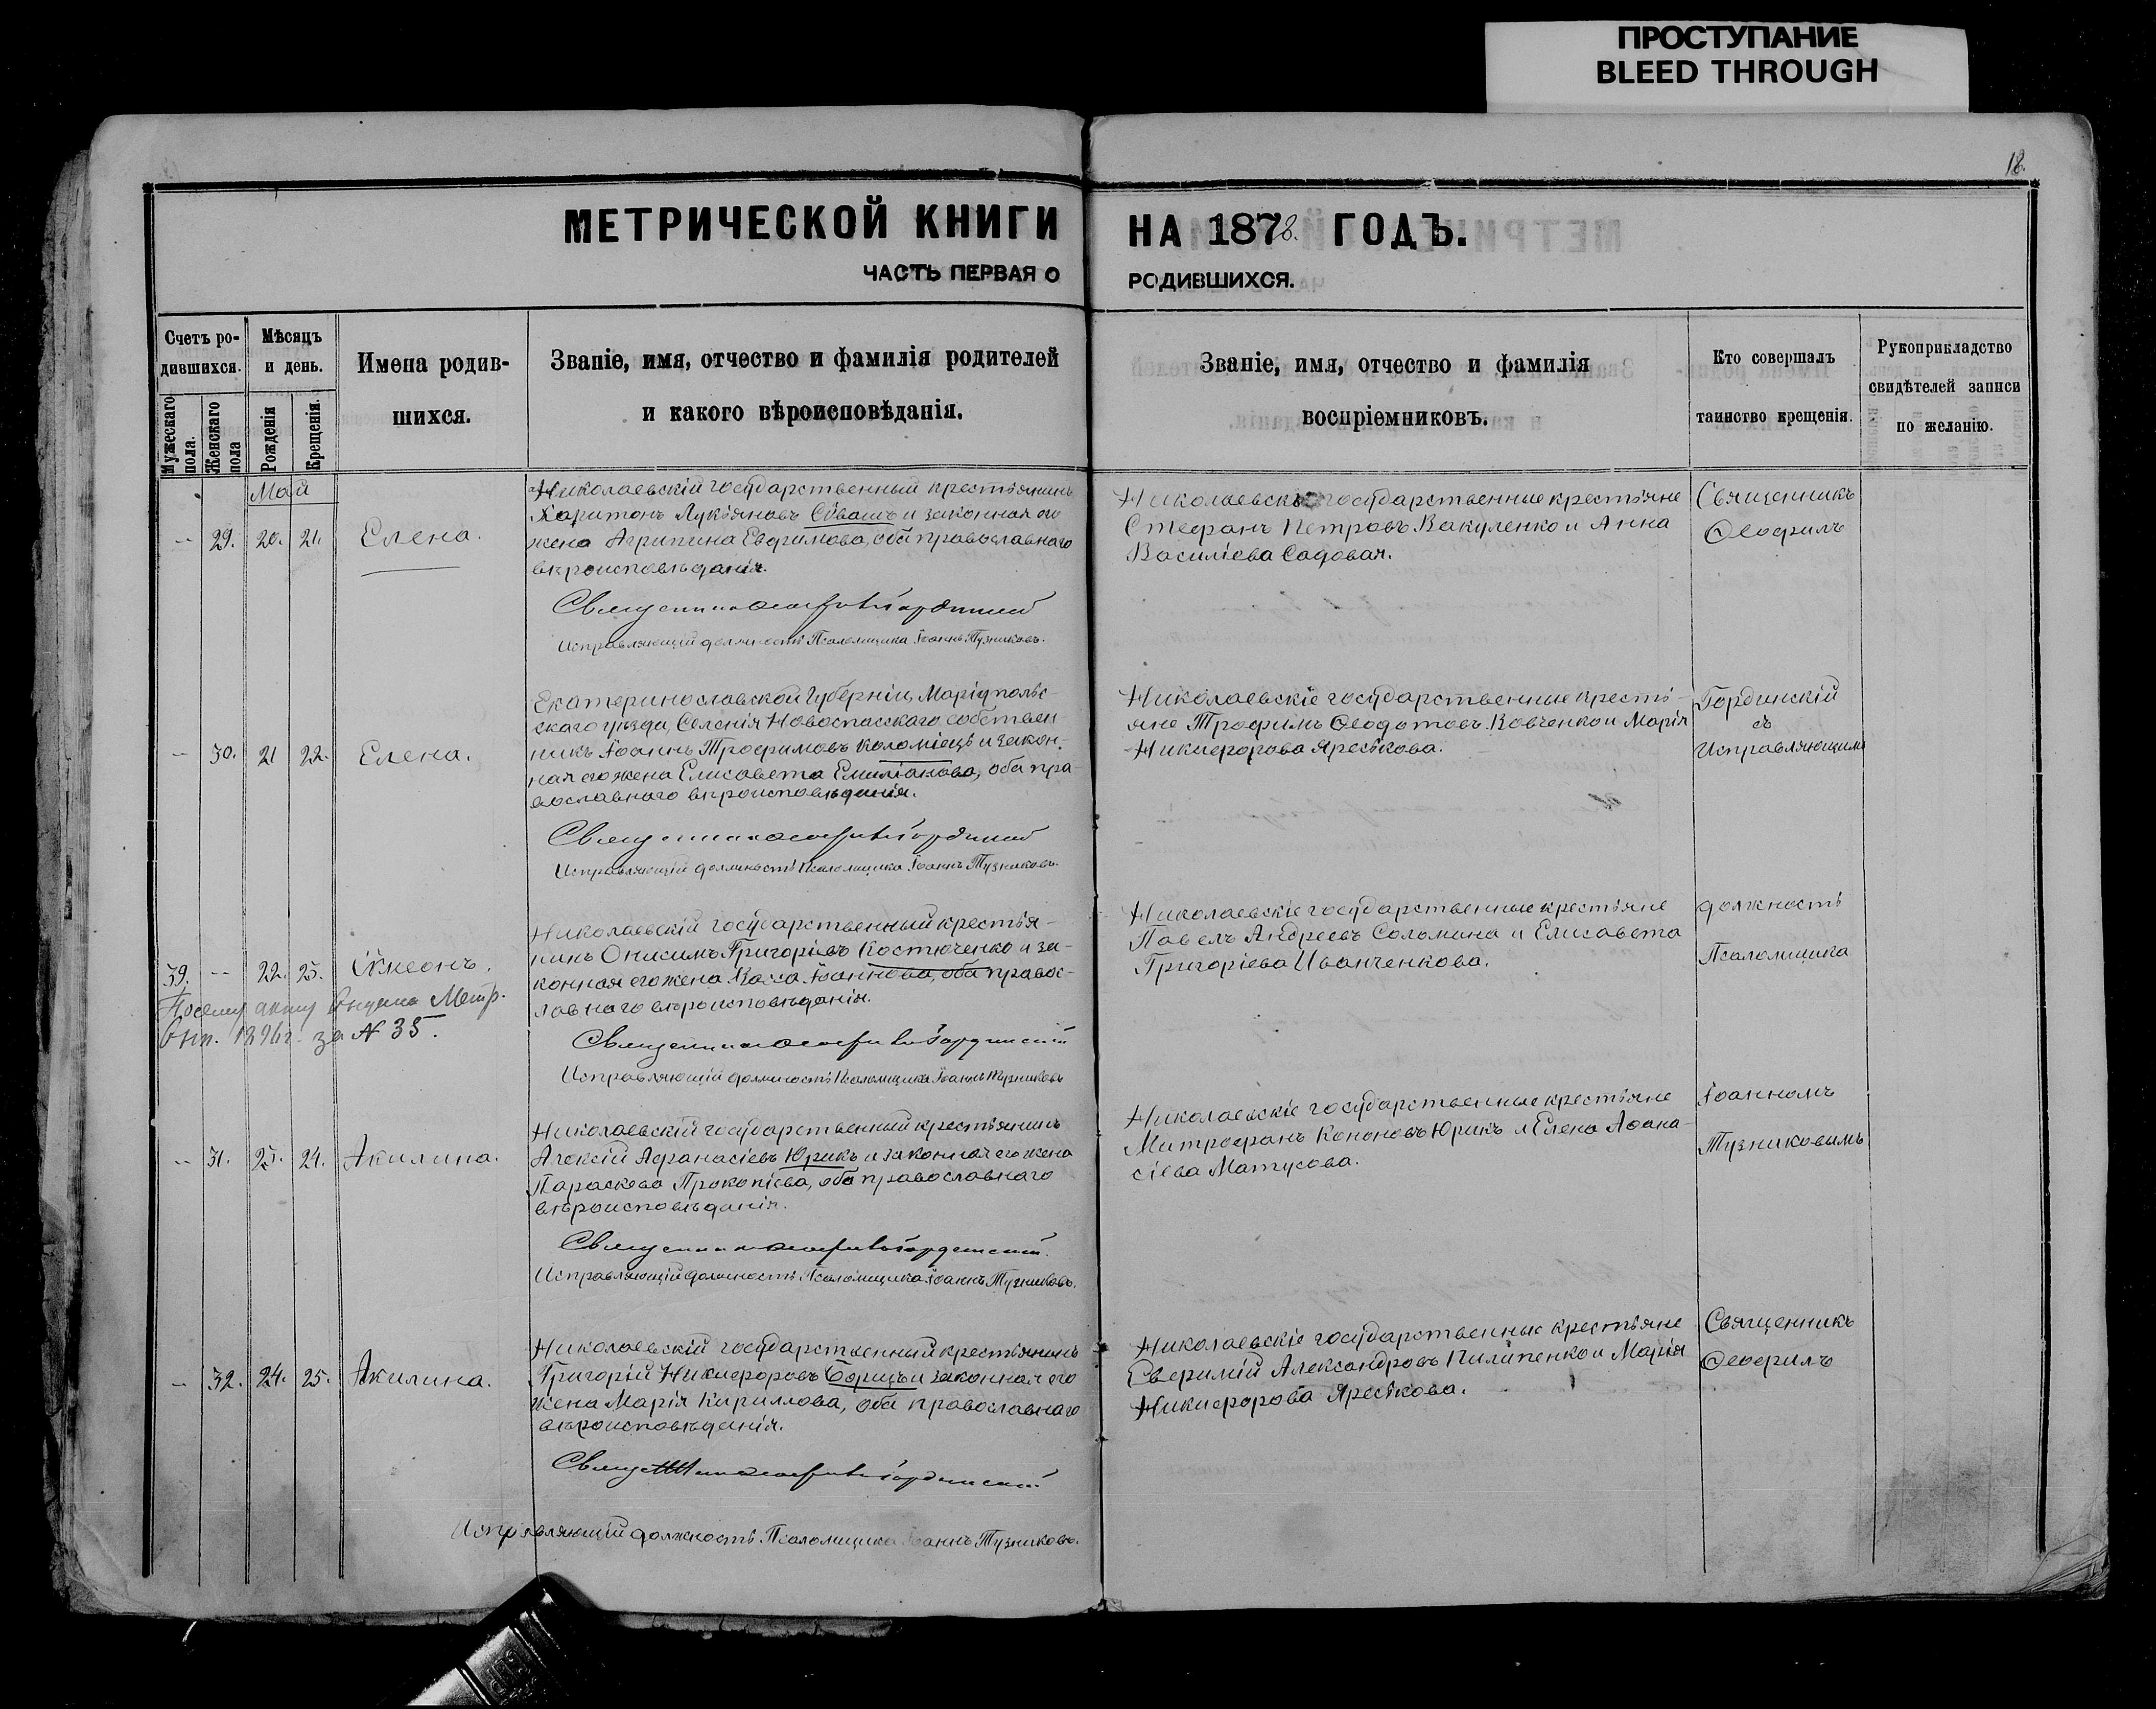 ПРОСТУПАНИЕ
BLEED THROUGH
18.
МЕТРИЧЕСКОЙ КНИГИ НА 1878. ГОДЪ.
ЧАСТЬ ПЕРВАЯ О РОДИВШИХСЯ.
Счетъ ро-
дившихся.
Мужескаго
пола.
Женскаго
пола
Мѣсяцъ
и день.
Рожденія
Крещенія.
Имена родив-
шихся.
Званіе, имя, отчество и фамилія родителей
и какого вѣроисповѣданія.
Званіе, имя, отчество и фамилія
воспріемниковъ.
Кто совершалъ
таинство крещенія.
Рукоприкладство
свидѣтелей записи
по желанію.
Май
-- 29. 20. 21. Елена.
Николаевскій государственный крестьянинъ
Харитонъ Лукьяновъ Сивашъ и законная его
жена Агрипина Евфимова, оба православнаго
вѣроисповѣданія.
Священникъ Ѳеофилъ Гординскій
Исправляющій должность Псаломщика Іоаннъ Тузниковъ.
Николаевскіе государственные крестьяне
Стефанъ Петровъ Вакуленко и Анна
Василіева Садовая.
Священникъ
Ѳеофилъ
-- 30. 21 22. Елена.
Екатеринославской Губерніи, Маріуполь-
скаго уѣзда, Селенія Новоспасскаго, собствен-
никъ Іоаннъ Трофимовъ Коломіецъ и закон-
ная его жена Елисавета Емиліанова, оба пра-
вославнаго вѣроисповѣданія.
Священникъ Ѳеофилъ Гординскій
Исправляющій должность Псаломщика Іоаннъ Тузниковъ.
Николаевскіе государственные кресть-
яне Трофимъ Ѳеодотовъ Вовченко и Марія
Никифорова Яресѣкова.
Гординскій
съ
Исправляющимъ
39. -- 22. 23. Сѵмеонъ.
Николаевскій государственный крестья-
нинъ Онисимъ Григоріевъ Костюченко и за-
конная его жена Васса Іоаннова, оба правос-
лавнаго вѣроисповѣданія.
По сему акту выдана Метр.
вып. 1896г. за № 35.
Священникъ Ѳеофилъ Гординскій
Исправляющій должность Псаломщика Іоаннъ Тузниковъ
Николаевскіе государственные крестьяне
Павелъ Андреевъ Соломина и Елисавета
Григоріева Иванченкова.
должность
Псаломщика
-- 31. 23. 24. Акилина.
Николаевскій государственный крестьянинъ
Алексій Афанасіевъ Юрикъ и законная его жена
Параскева Прокопіева, оба православнаго
вѣроисповѣданія.
Священникъ Ѳеофилъ Гординскій.
Исправляющій должность Псаломщика Іоаннъ Тузниковъ.
Николаевскіе государственные крестьяне
Митрофанъ Кононовъ Юрикъ и Елена Аѳана-
сіева Матусова.
Іоанномъ
Тузниковымъ
-- 32. 24. 25. Акилина.
Николаевскій государственный крестьянинъ
Григорій Никифоровъ и законная его
жена Марія Кириллова, оба православнаго
вѣроисповѣданія.
Священникъ Ѳеофилъ Гординскій
Исправляющій должность Псаломщика Іоаннъ Тузниковъ.
Николаевскіе государственные крестьяне
Евфимій Александровъ Пилипенко и Марія
Никифорова Яресѣкова.
Священникъ
Ѳеофилъ